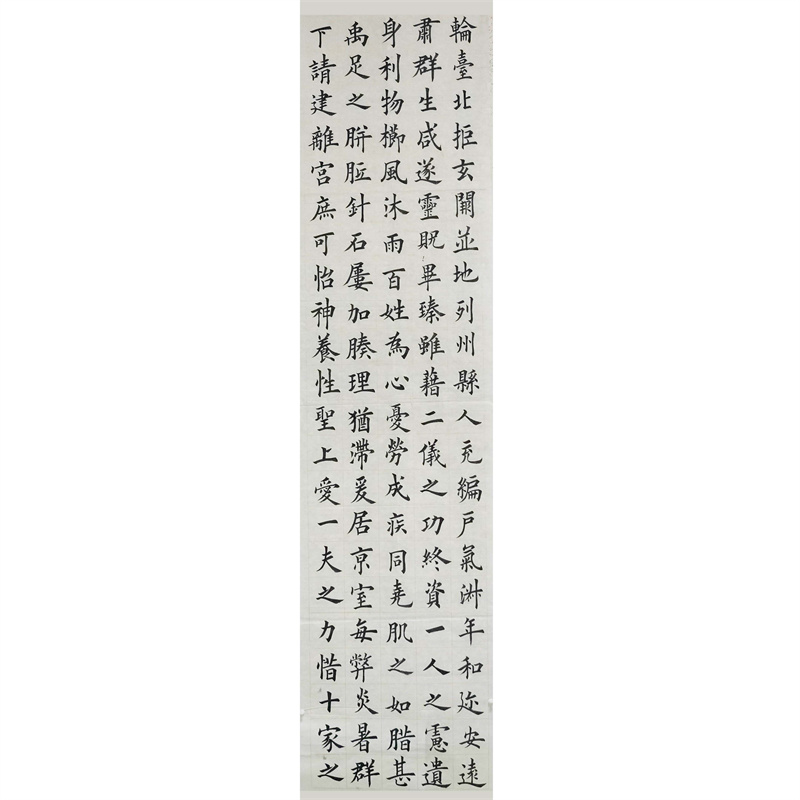 輪臺北拒玄闕並地列州縣人充編戶氣淑年和迩安遠
肅群生咸遂靈貺畢臻雖藉二儀之功終資一人之慮遺
身利物櫛風沐雨百姓為心憂勞成疾同堯肌之如腊甚
禹足之胼胝針石屢加腠理猶滯爰居京室每弊炎暑群
下請建離宮庶可怡神養性聖上愛一夫之力惜十家之